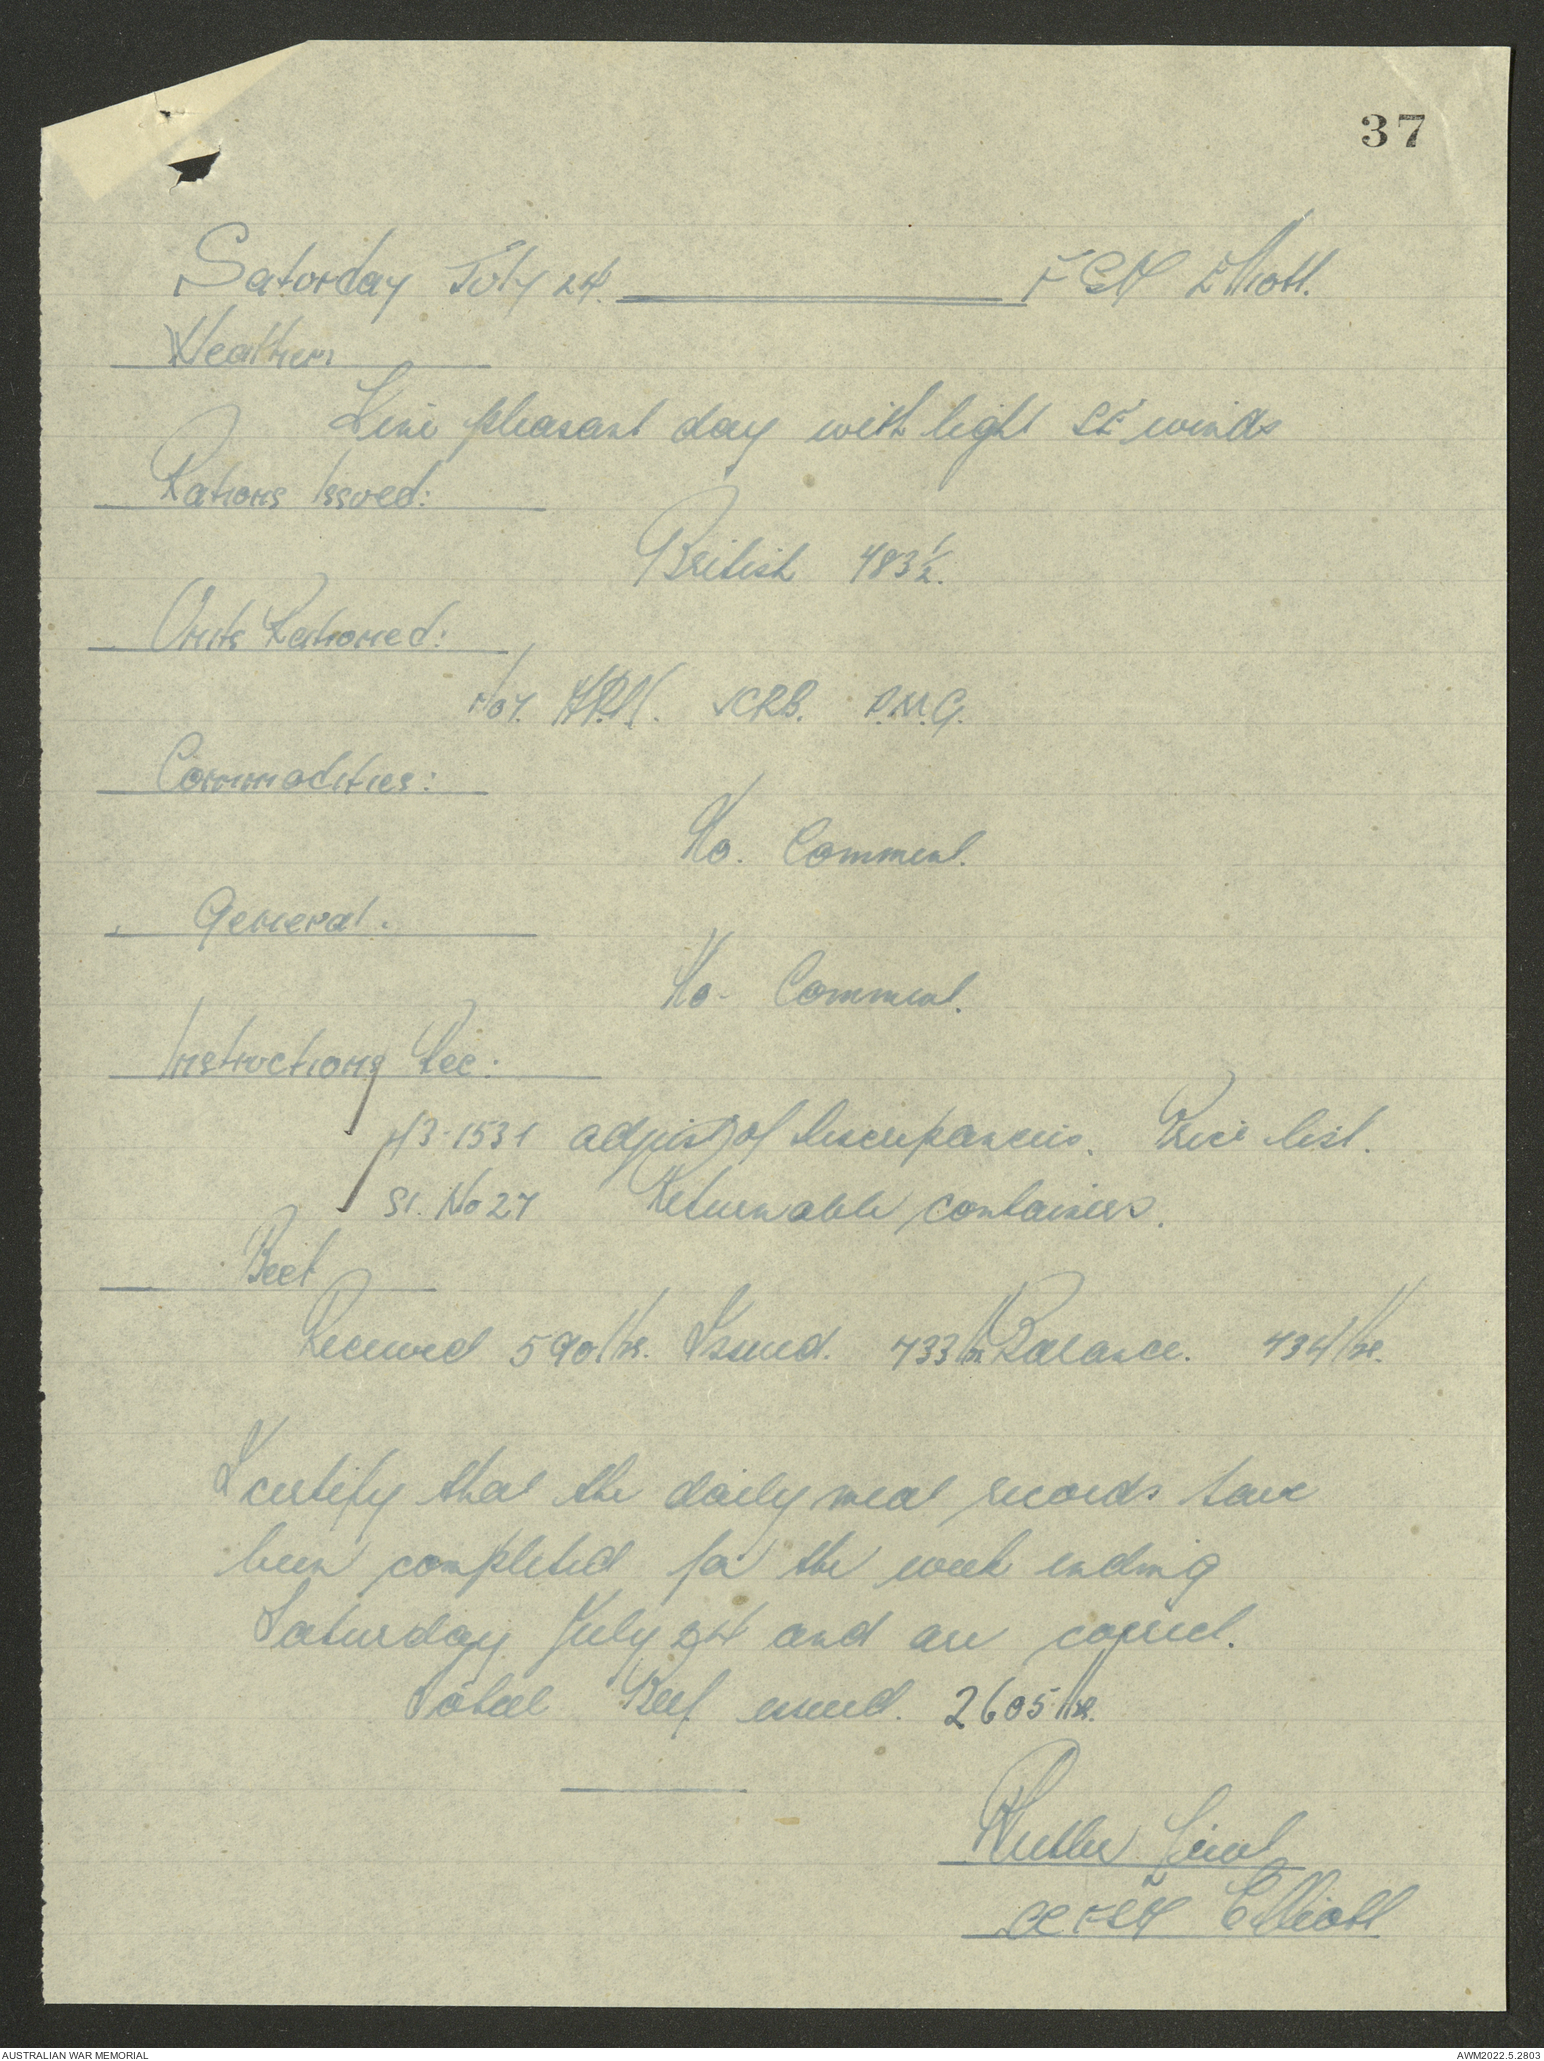 37
Saturday July 24. FSM Elliott.
Weather
Fine pleasant day with light SE winds
Rations Issued:
British 483 1/2.
Units Rationed:
No 7. VCRB. P.M.G.
Commodities:
No. Comment.
General.
No. Comment.
Instructions Rec:
43-1531 adjust of discrepancies. Price list.
SI. No 27 Returnable containers.
Beef
Received 590 lbs. Issued. 733 lbs Balance. 434 lbs.
I certify that the daily meat records have
been completed for the week ending
Saturday July 24 and are correct.
Total Beef issued. 2605 lbs.
Lieut
OC FSM Elliott
AUSTRALIAN WAR MEMORIAL
AWM2022.5.2803